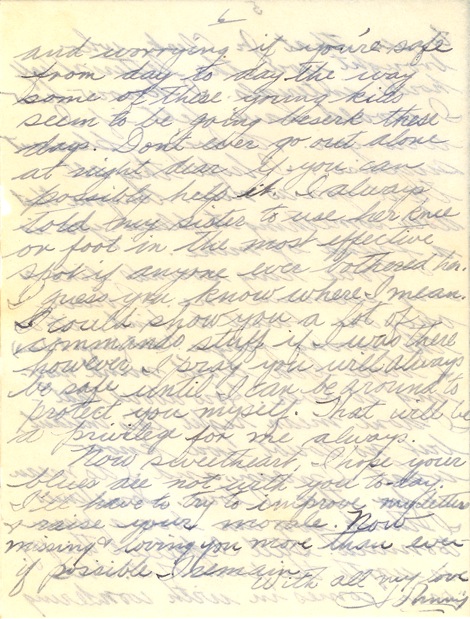 6
and worrying if you're safe
from day to day the way
some of these young kids
seem to be going beserk these
days. Don't ever go out alone
at night dear if you can
possibly help it. I always
told my sister to use her knee
or foot in the most effective
spot if anyone ever bothered her.
I guess you know where I mean.
I could show you a lot of
commando stuff if I was there
however I pray you will always
be safe until I can be around to
protect you myself. That will be
a privileg for me always.
Now sweetheart, I hope your
blues are not with you to-day.
I'll have to try to improve my letters
& raise your morale. Now
missing & loving you more than ever
if possible I remain
With all my love